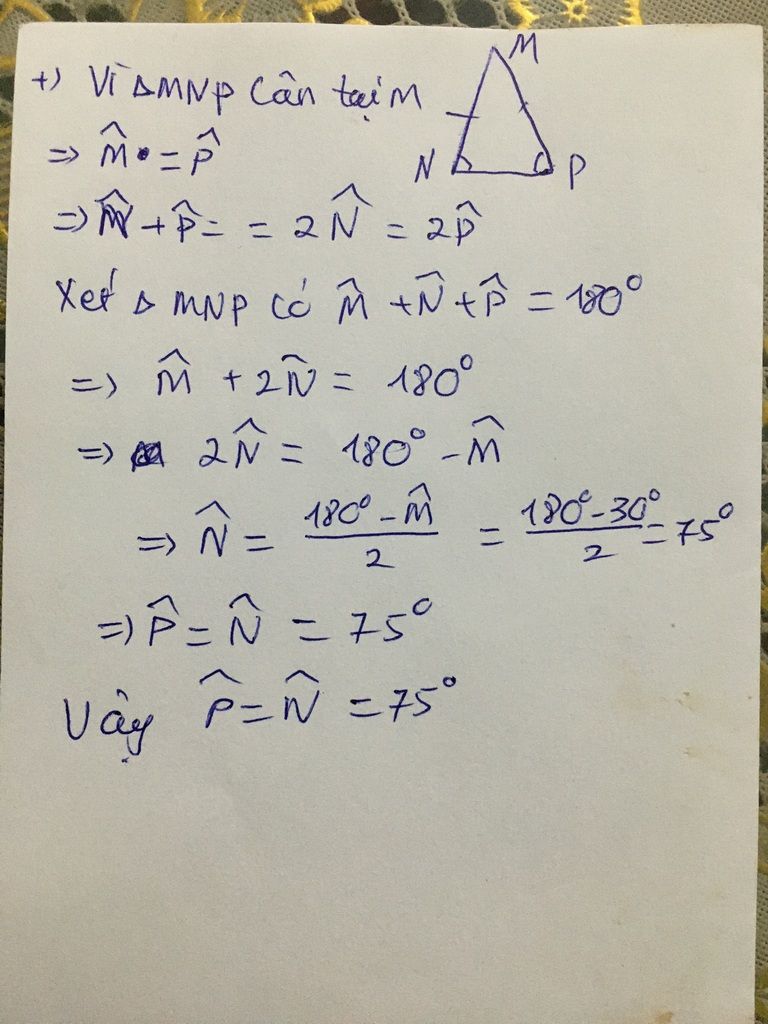 +) Vì ΔMNP cân tại M
M
N
P
=> M̂ = P̂
=> N̂ + P̂ = = 2N̂ = 2P̂
Xét Δ MNP có M̂ + N̂ + P̂ = 180°
=> M̂ + 2N̂ = 180°
=> 2N̂ = 180° - M̂
=> N̂ = (180° - M̂)/2 = (180° - 30°)/2 = 75°
=> P̂ = N̂ = 75°
Vậy P̂ = N̂ = 75°